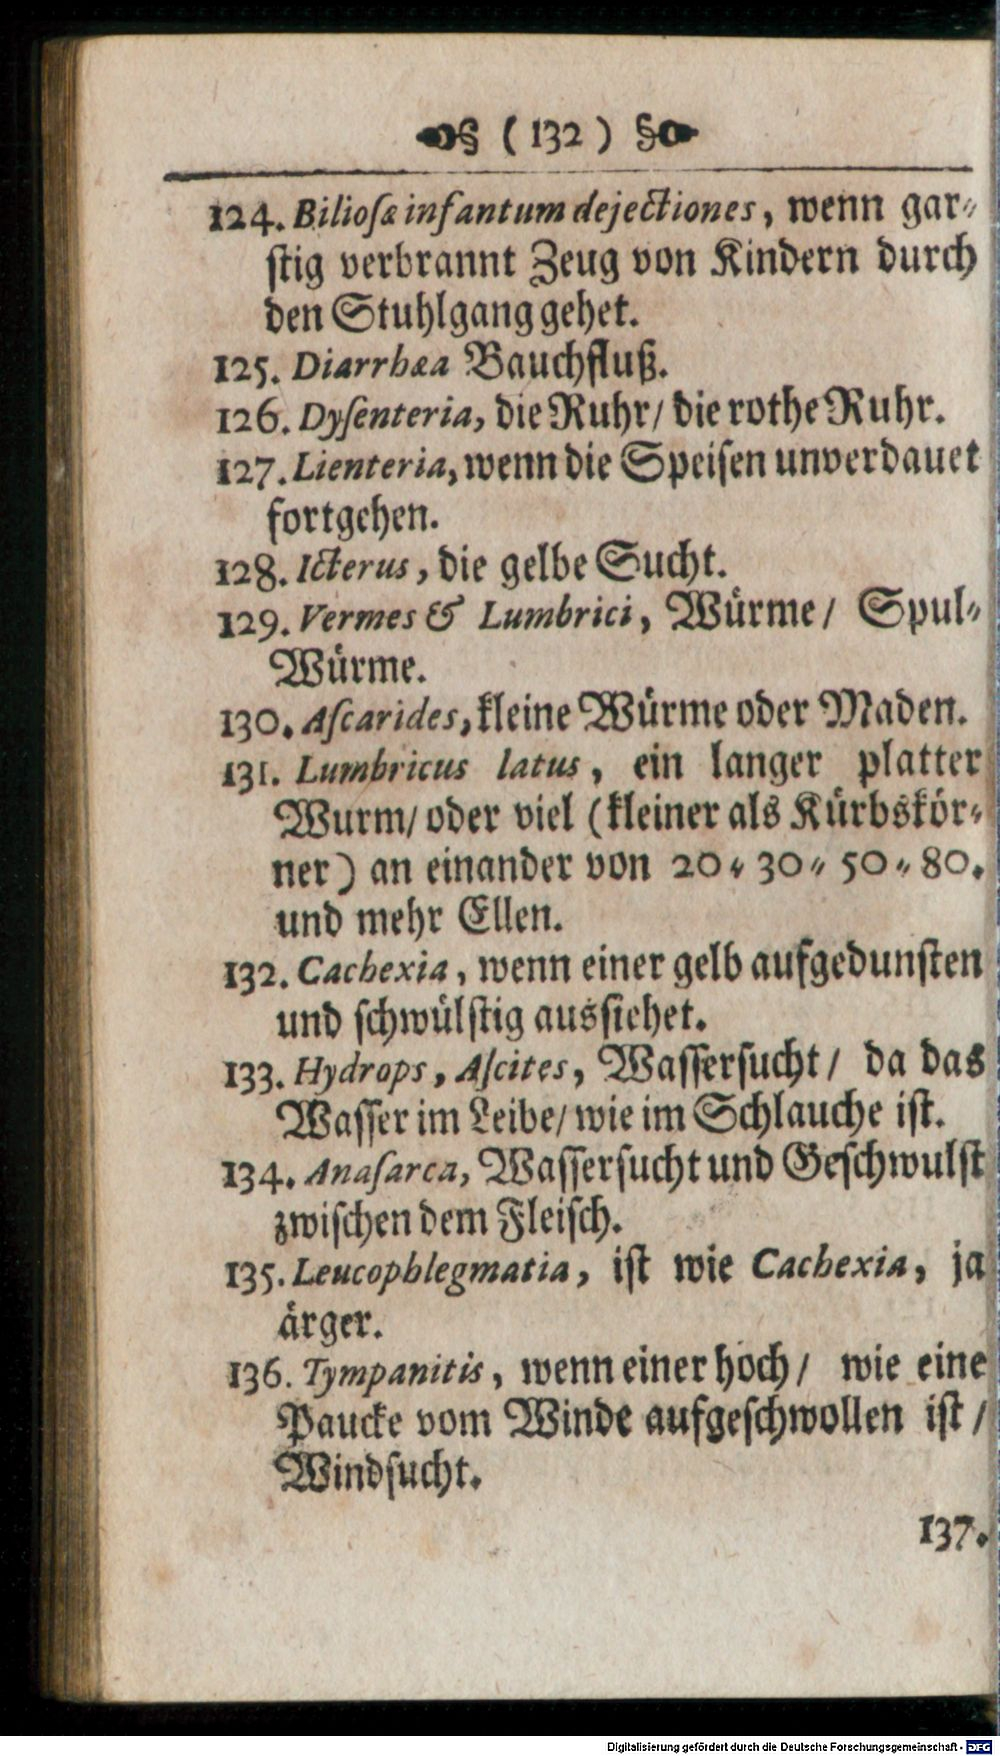 § ( 132 ) §
124. Bilioſæ infantum dejectiones, wenn gar-
ſtig verbrannt Zeug von Kindern durch
den Stuhlgang gehet.
125. Diarrhæa Bauchfluß.
126. Dyſenteria, die Ruhr/ die rothe Ruhr.
127. Lienteria, wenn die Speiſen unverdauet
fortgehen.
128. Icterus, die gelbe Sucht.
129. Vermes & Lumbrici, Würme/ Spul-
Würme.
130. Aſcarides, kleine Würme oder Maden.
131. Lumbricus latus, ein langer platter
Wurm/ oder viel (kleiner als Kürbskör-
ner) an einander von 20- 30- 50- 80.
und mehr Ellen.
132. Cachexia, wenn einer gelb aufgedunſten
und ſchwülſtig ausſiehet.
133. Hydrops, Aſcites, Waſſerſucht/ da das
Waſſer im Leibe/ wie im Schlauche iſt.
134. Anaſarca, Waſſerſucht und Geſchwulſt
zwiſchen dem Fleiſch.
135. Leucophlegmatia, iſt wie Cachexia, ja
ärger.
136. Tympanitis, wenn einer hoch/ wie eine
Paucke vom Winde aufgeſchwollen iſt/
Windſucht.
137.
Digitalisierung gefördert durch die Deutsche Forschungsgemeinschaft - DFG